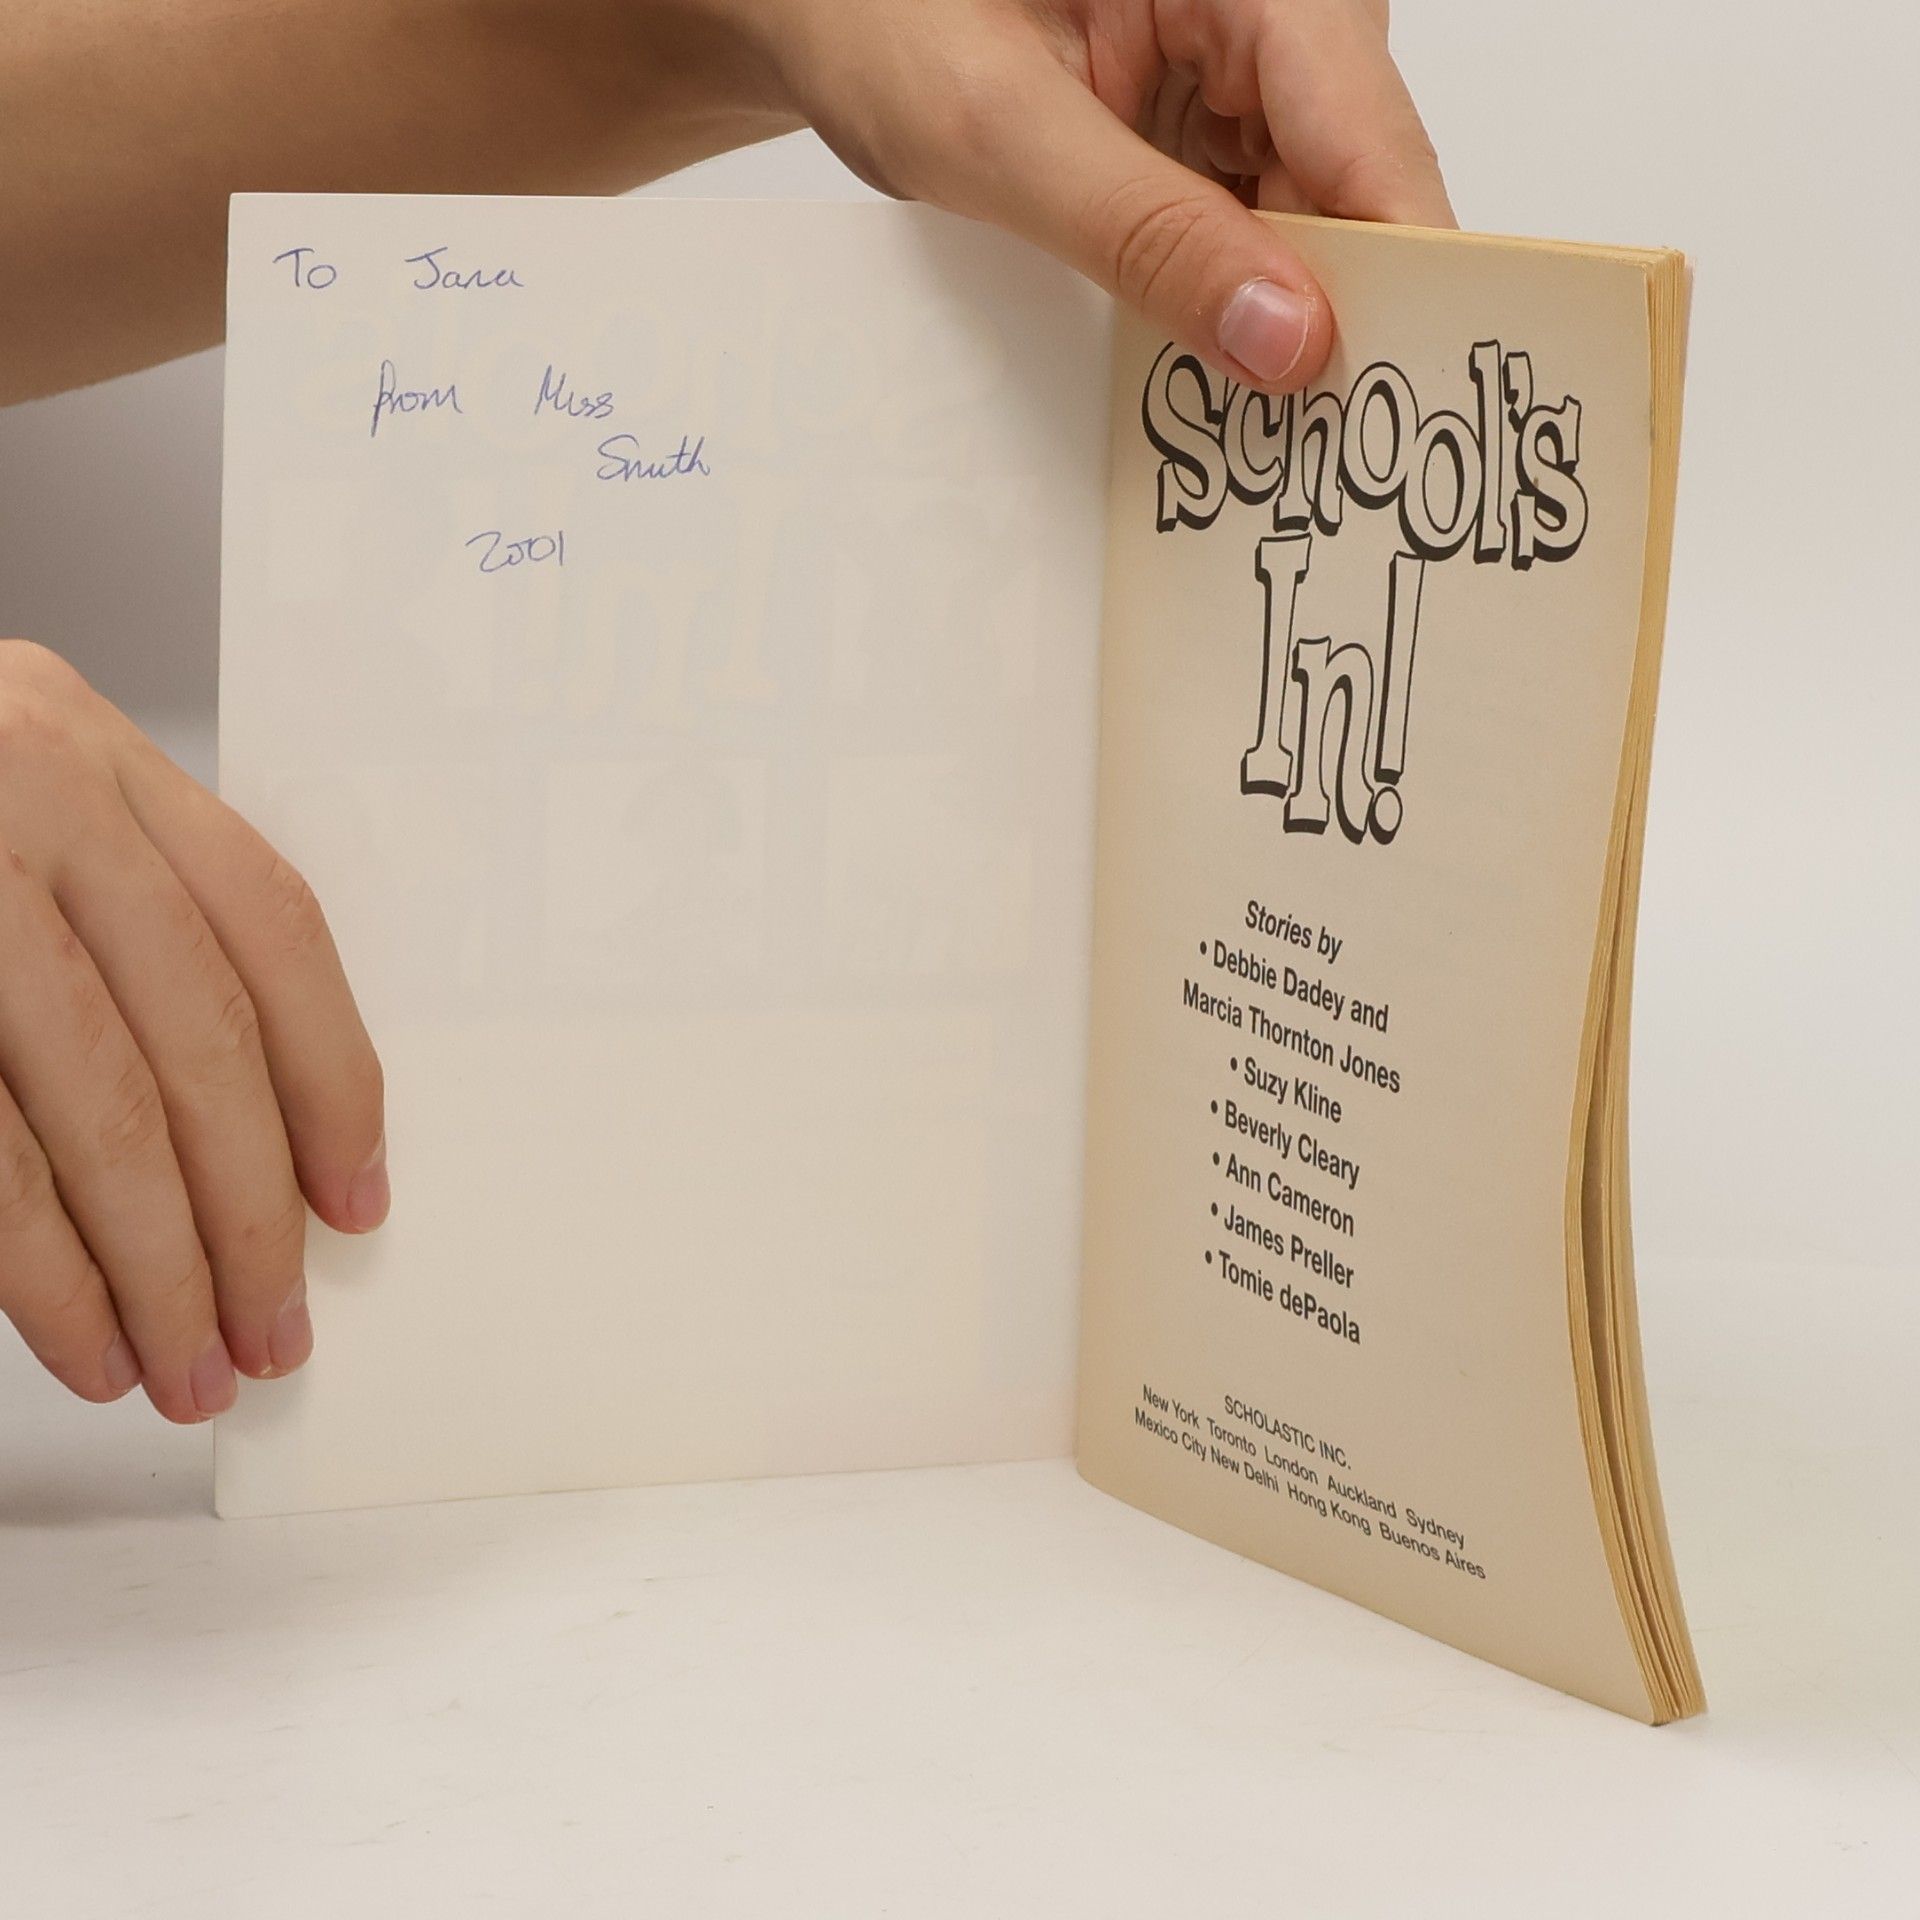 To Jana
from Miss
Smith
2001
School's
In!
Stories by
• Debbie Dadey and
Marcia Thornton Jones
• Suzy Kline
• Beverly Cleary
• Ann Cameron
• James Preller
• Tomie dePaola
SCHOLASTIC INC.
New York Toronto London Auckland Sydney
Mexico City New Delhi Hong Kong Buenos Aires